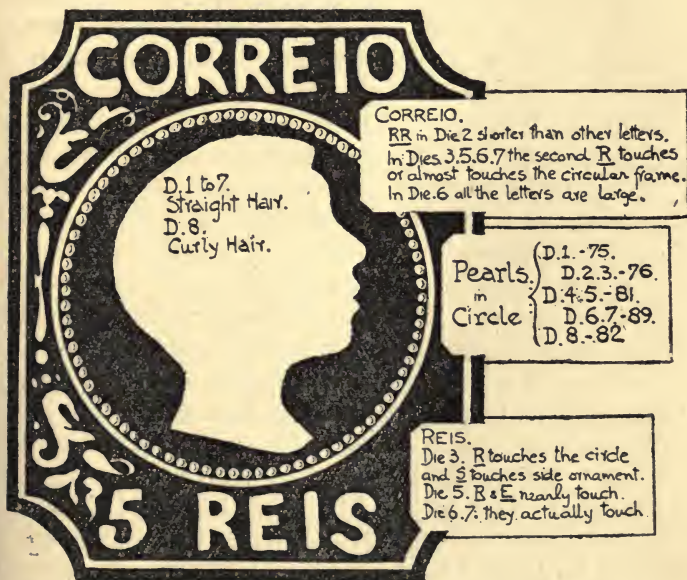 CORREIO
CORREIO.
RR in Die 2 shorter than other letters.
In Dies 3.5.6.7 the second R touches
or almost touches the circular frame.
In Die 6 all the letters are large.
D.1 to 7.
Straight Hair.
D.8.
Curly Hair.
Pearls
in
Circle
D.1.-75.
D.2.3.-76.
D.4.5.-81.
D.6.7.-89.
D.8.-82
REIS.
Die 3. R touches the circle
and S touches side ornament.
Die 5. R & E nearly touch.
Die 6.7: they actually touch
5 REIS